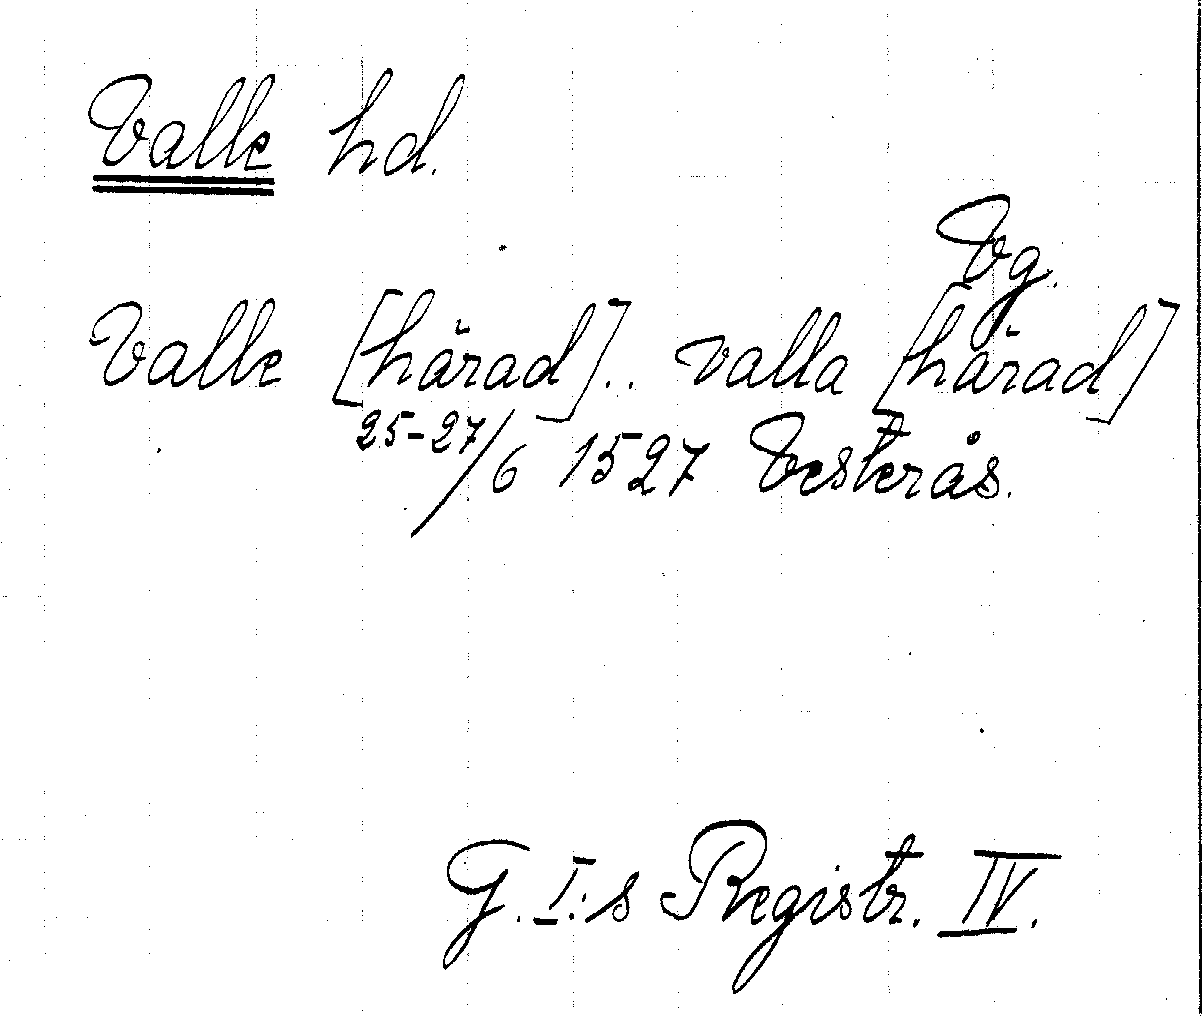 Valle hd.
Vg.
Valle [härad].. valla [härad]
25-27/6 1527 Vesterås.
G. I:s Registr. IV.